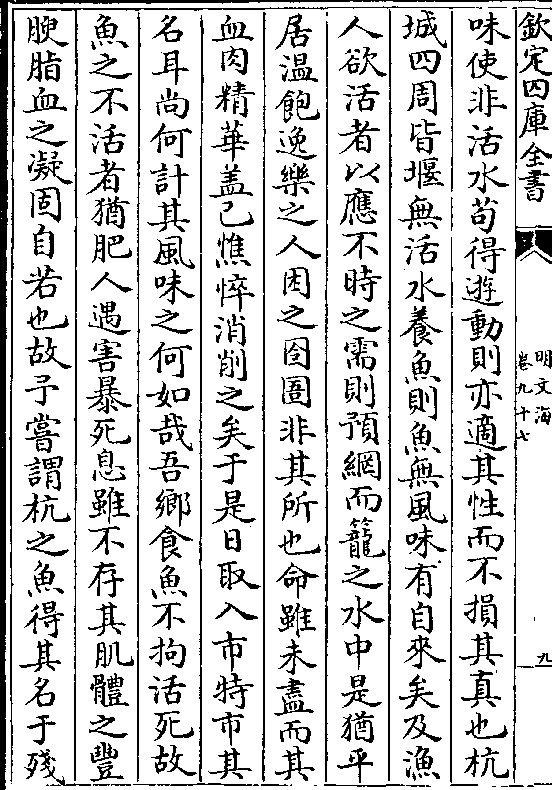 欽定四庫全書
明文海
卷九十七
九
味使非活水苟得遊動則亦適其性而不損其真也杭
城四周皆堰無活水養魚則魚無風味有自來矣及漁
人欲活者以應不時之需則預網而籠之水中是猶平
居溫飽逸樂之人困之囹圄非其所也命雖未盡而其
血肉精華盖已憔悴消削之矣于是日取入市特市其
名耳尚何計其風味之何如哉吾鄉食魚不拘活死故
魚之不活者猶肥人遇害暴死息雖不存其肌體之豐
腴脂血之凝固自若也故予嘗謂杭之魚得其名于殘